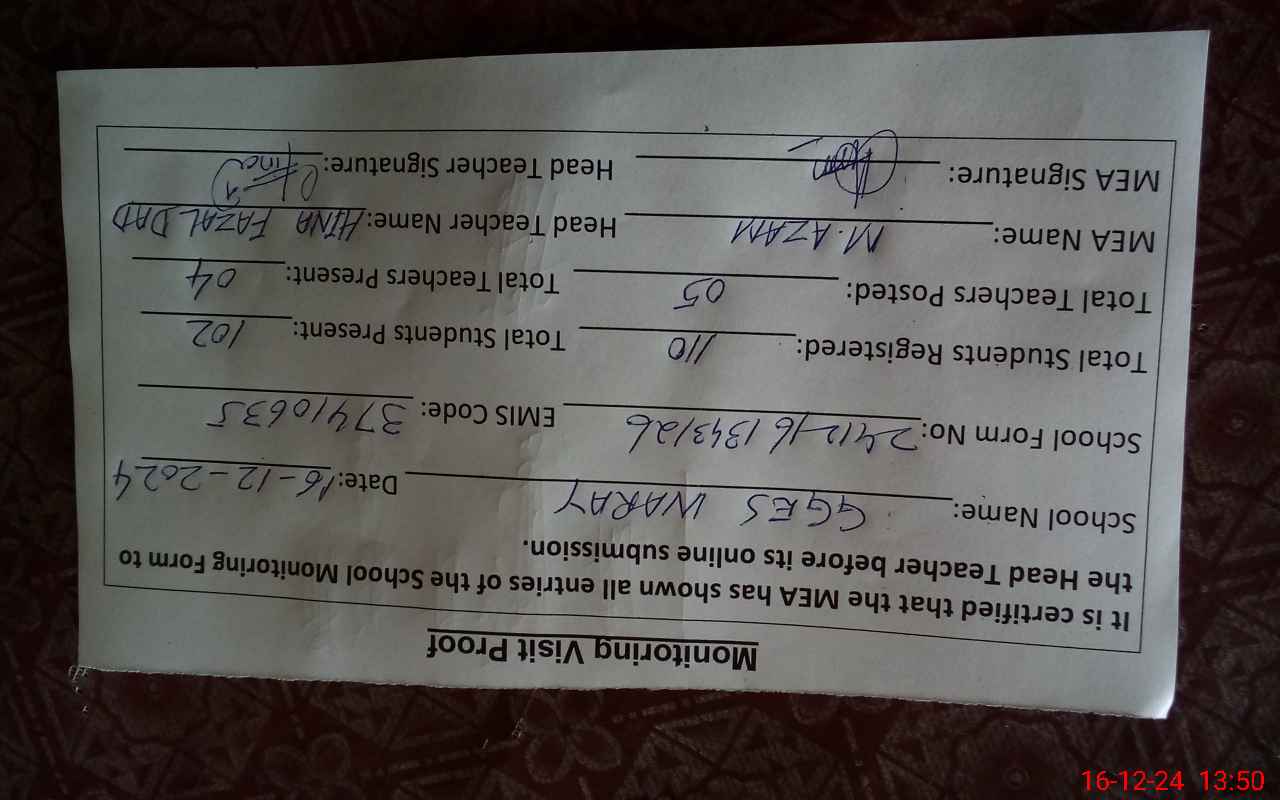 Monitoring Visit Proof
It is certified that the MEA has shown all entries of the School Monitoring Form to
the Head Teacher before its online submission.
School Name: GGES WARAY Date: 16-12-2024
School Form No: 241216134312b EMIS Code: 37410635
Total Students Registered: 110 Total Students Present: 102
Total Teachers Posted: 05 Total Teachers Present: 04
MEA Name: M. AZAM Head Teacher Name: HINA FAZAL DAD
MEA Signature: Head Teacher Signature:
16-12-24 13:50